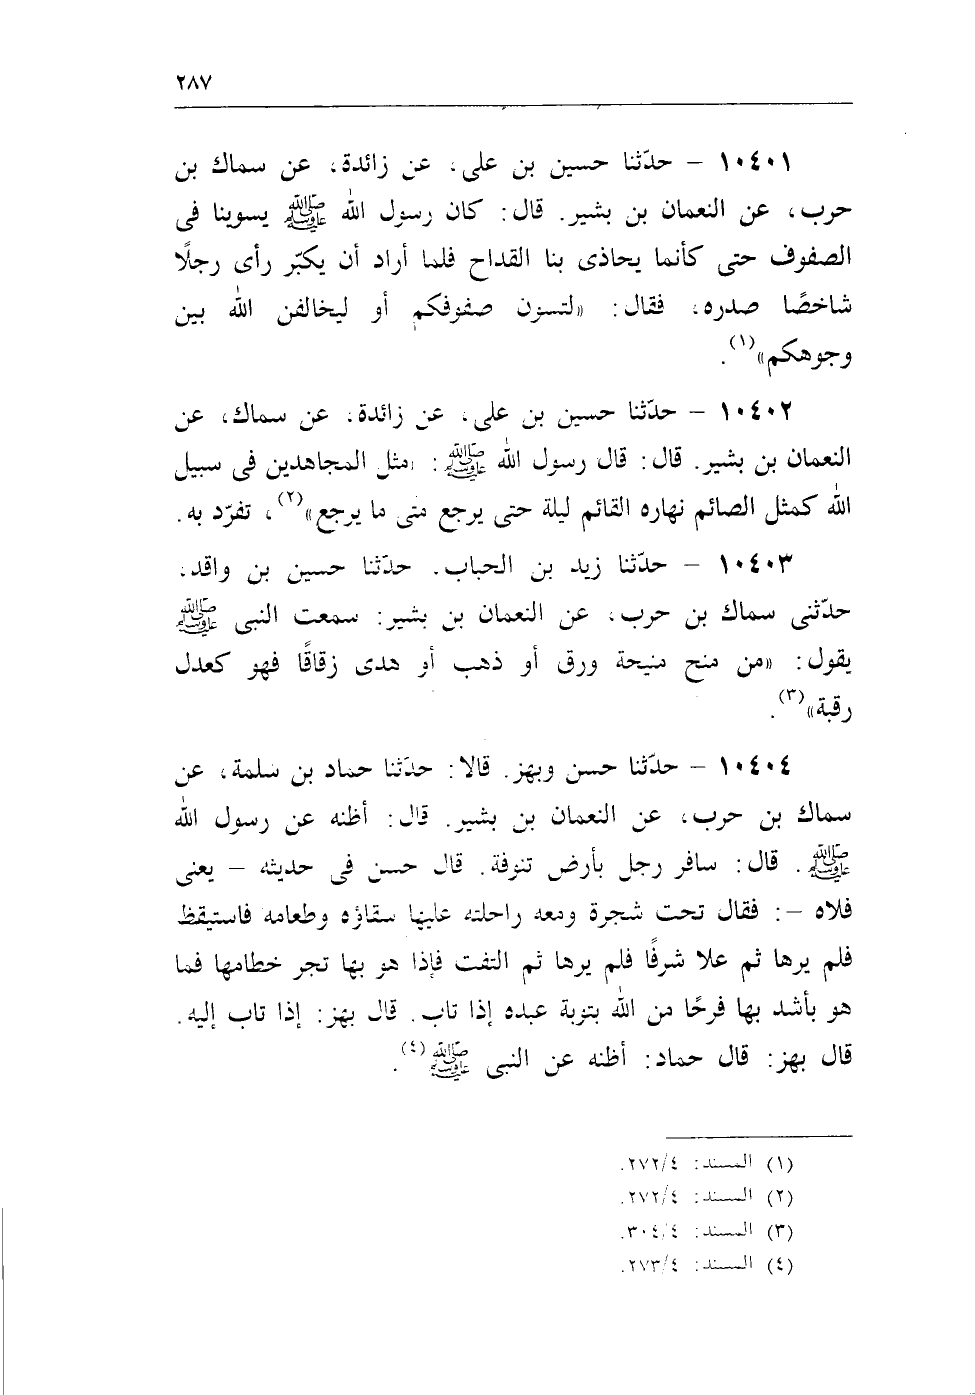 ٢٨٧
١٠٤٠١ – حدّثنا حسين بن على، عن زائدة، عن سماك بن
حرب، عن النعمان بن بشير. قال: كان رسول الله ﷺ يسوينا فى
الصفوف حتى كأنما يحاذى بنا القداح فلما أراد أن يكبّر رأى رجلًا
شاخصًا صدره، فقال: «لتسون صفوفكم أو ليخالفن الله بين
وجوهكم»(١).
١٠٤٠٢ – حدّثنا حسين بن على، عن زائدة، عن سماك، عن
النعمان بن بشير. قال: قال رسول الله ﷺ: «مثل المجاهدين فى سبيل
الله كمثل الصائم نهاره القائم ليلة حتى يرجع متى ما يرجع»(٢)، تفرّد به.
١٠٤٠٣ – حدّثنا زيد بن الحباب. حدّثنا حسين بن واقد،
حدّثنى سماك بن حرب، عن النعمان بن بشير: سمعت النبى ﷺ
يقول: «من منح منيحة ورق أو ذهب أو هدى زقاقًا فهو كعدل
رقبة»(٣).
١٠٤٠٤ – حدّثنا حسن وبهز. قالا: حدّثنا حماد بن سلمة، عن
سماك بن حرب، عن النعمان بن بشير. قال: أظنه عن رسول الله
ﷺ. قال: سافر رجل بأرض تنوفة. قال حسن فى حديثه – يعنى
فلاه –: فقال تحت شجرة ومعه راحلته عليها سقاؤه وطعامه فاستيقظ
فلم يرها ثم علا شرفًا فلم يرها ثم التفت فإذا هو بها تجر خطامها فما
هو بأشد بها فرحًا من الله بتوبة عبده إذا تاب. قال بهز: إذا تاب إليه.
قال بهز: قال حماد: أظنه عن النبى ﷺ(٤).
(١) المسند: ٢٧٢/٤.
(٢) المسند: ٢٧٢/٤.
(٣) المسند: ٣٠٤/٤.
(٤) المسند: ٢٧٣/٤.